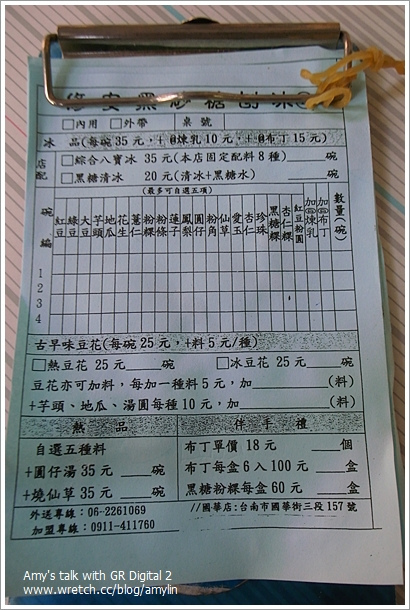 修安黑砂糖刨冰
□內用 □外帶 桌號
冰 品(每碗 35 元,+煉乳 10 元,+布丁 15 元)
店配
□綜合八寶冰 35 元(本店固定配料 8 種)____碗
□黑糖清冰 20 元(清冰+黑糖水)____碗
(最多可自選五項)
碗 編
紅豆 綠豆 大豆 芋頭 地瓜 花生 薏仁 粉粿 粉條 蓮子 鳳梨 圓仔 粉角 仙草 愛玉 杏仁 珍珠 黑糖粿 杏仁粿 紅豆粉圓 加煉乳 加布丁 數量(碗)
1
2
3
4
古早味豆花(每碗 25 元,+料 5 元/種)
□熱豆花 25 元____碗 □冰豆花 25 元____碗
豆花亦可加料,每加一種料 5 元,加________(料)
+芋頭、地瓜、湯圓每種 10 元,加________(料)
熱品 伴手禮
自選五種料 布丁單價 18 元 ____個
+圓仔湯 35 元 ____碗 布丁每盒 6 入 100 元 ____盒
+燒仙草 35 元 ____碗 黑糖粉粿每盒 60 元 ____盒
外送專線:06-2261069 //國華店:台南市國華街三段 157 號
加盟專線:0911-411760
Amy's talk with GR Digital 2
www.wretch.cc/blog/amylin